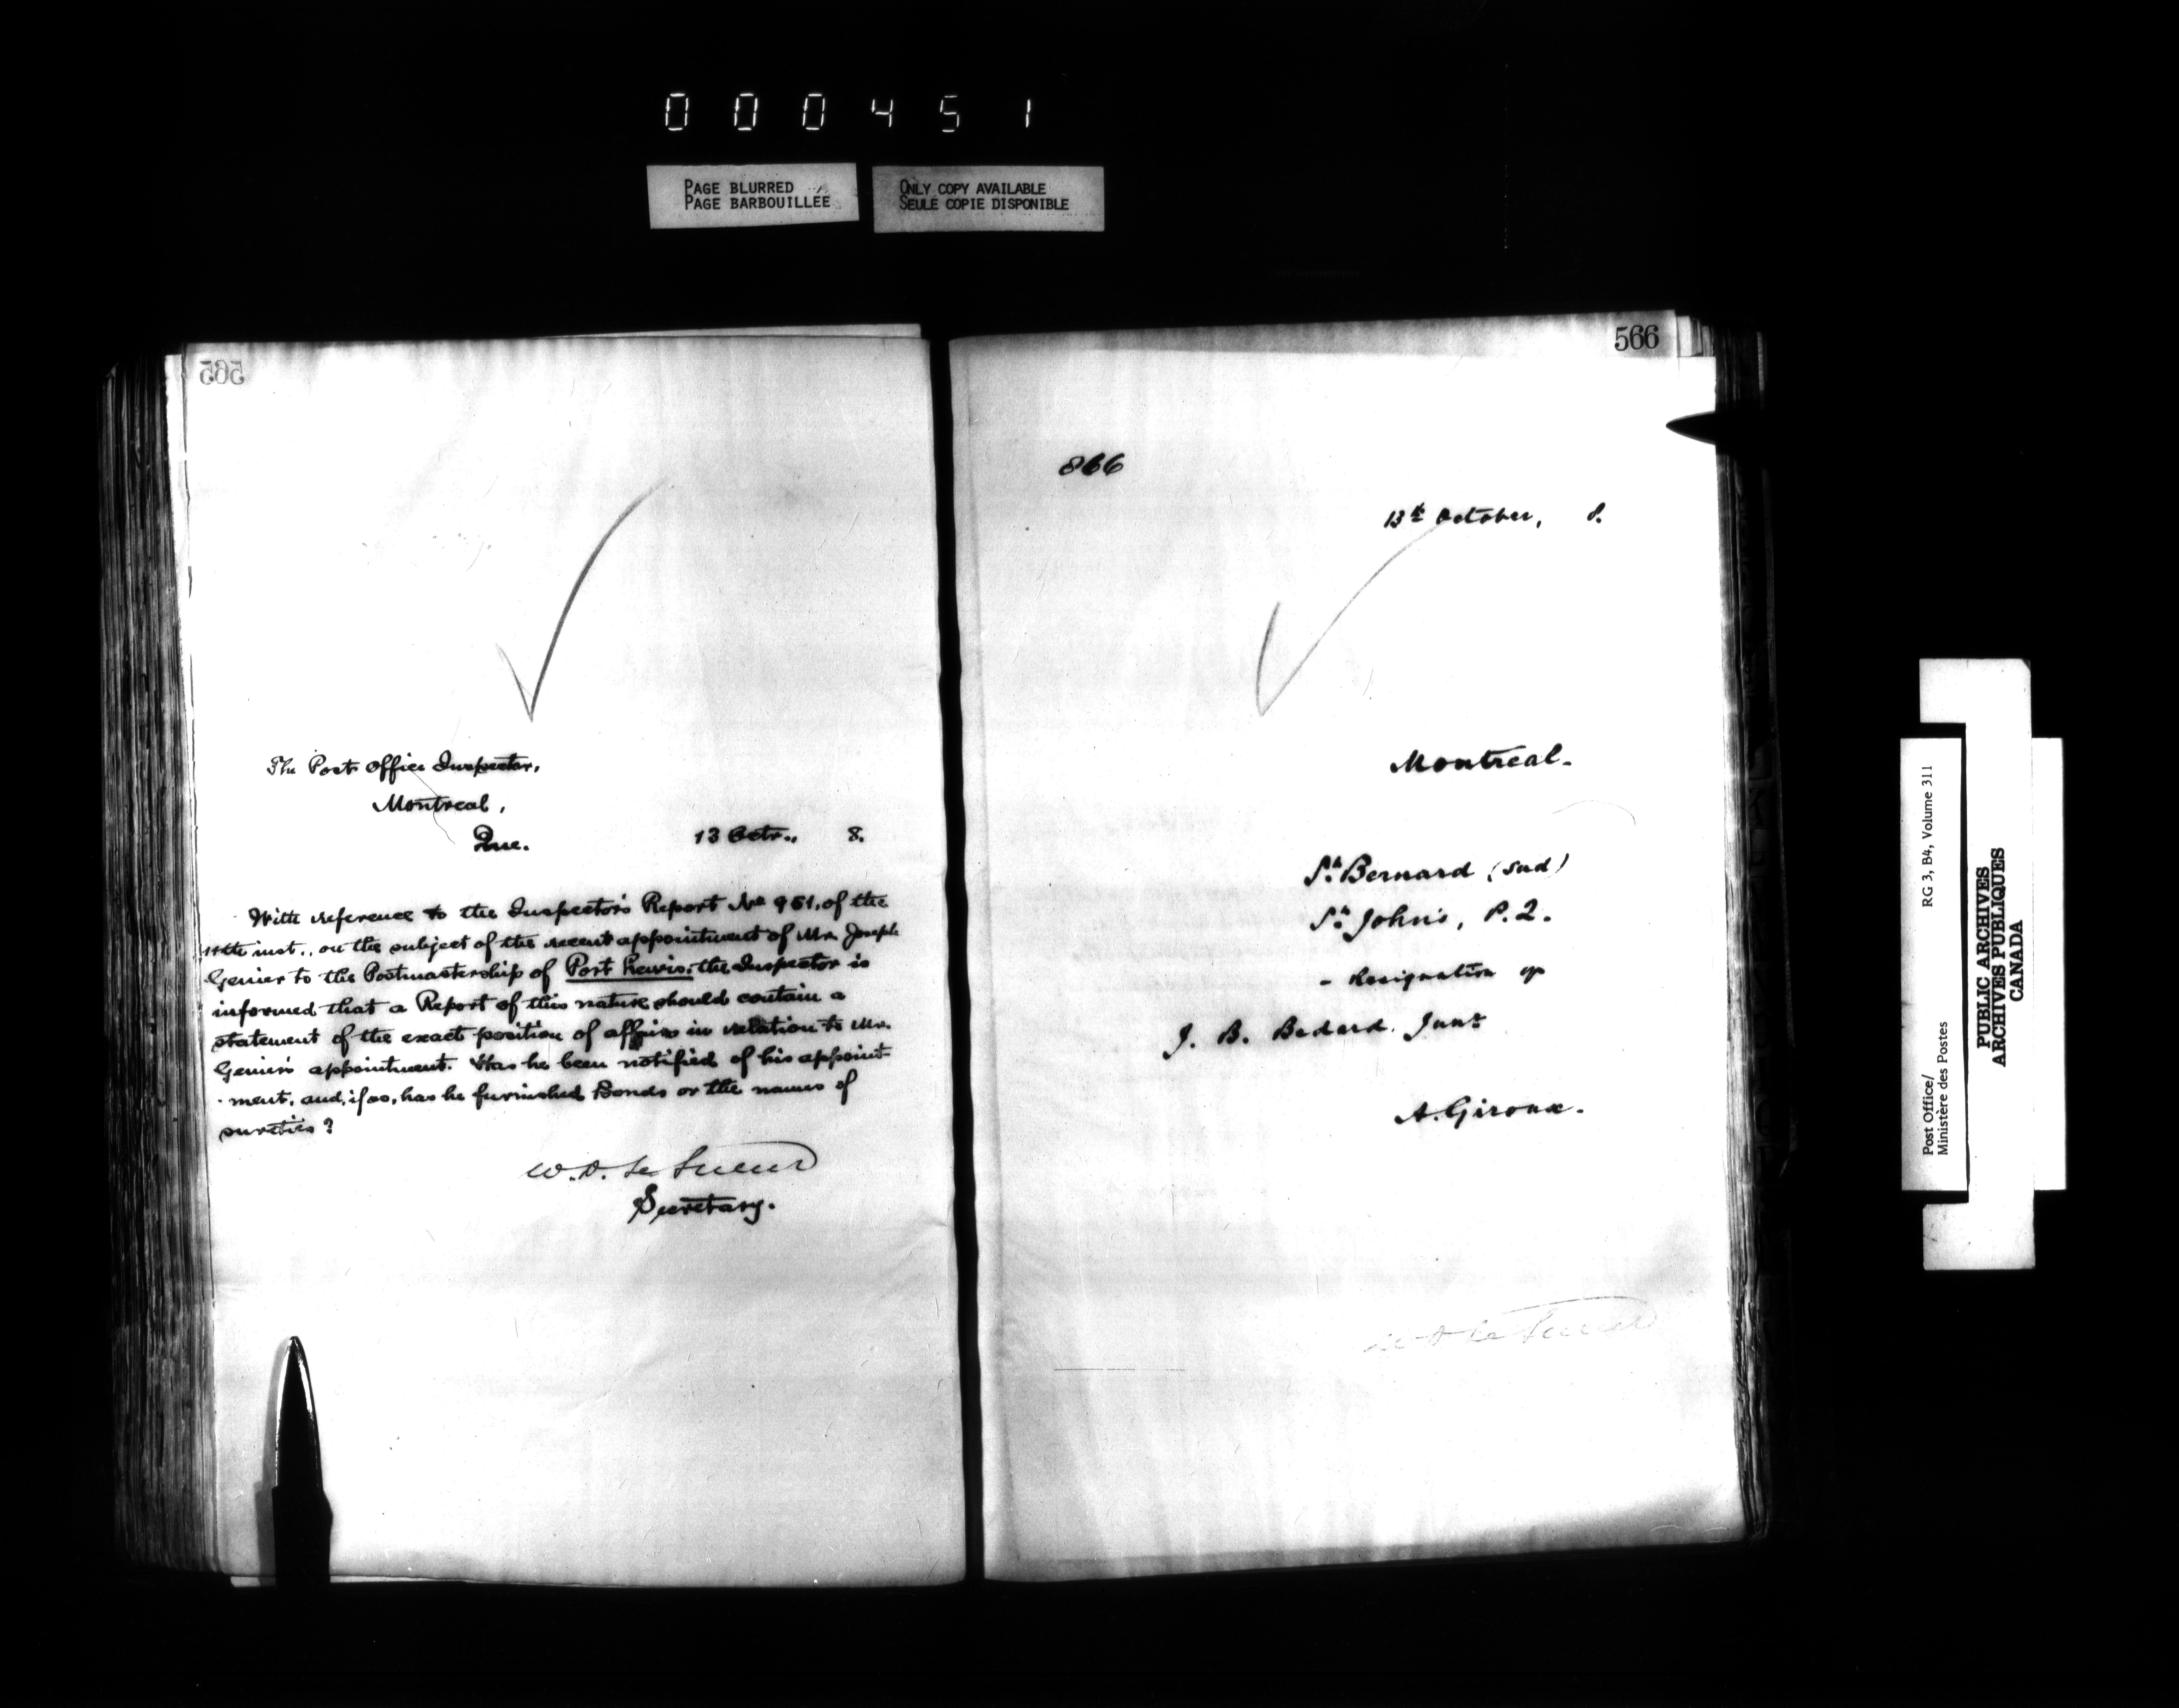 000451
PAGE BLURRED
PAGE BARBOUILLEE
ONLY COPY AVAILABLE
SEULE COPIE DISPONIBLE
565
The Post Office Inspector,
Montreal,
Que.
13 Octr., 8.
With reference to the Inspector's Report No 951, of the
11th inst., on the subject of the recent appointment of Mr. Joseph
Genier to the Postmastership of Port Lewis, the Inspector is
informed that a Report of this nature should contain a
statement of the exact position of affairs in relation to Mr.
Genier's appointment. Has he been notified of his appoint-
ment, and, if so, has he furnished Bonds or the names of
sureties?
W. D. Le Sueur
Secretary.
566
866
13th October, 8.
Montreal.
St. Bernard (sud)
St. John's, P.Q.
- Resignation of
J. B. Bedard. Junr
A. Giroux.
W D Le Sueur
Post Office/ RG 3, B4, Volume 311
Ministère des Postes
PUBLIC ARCHIVES
ARCHIVES PUBLIQUES
CANADA